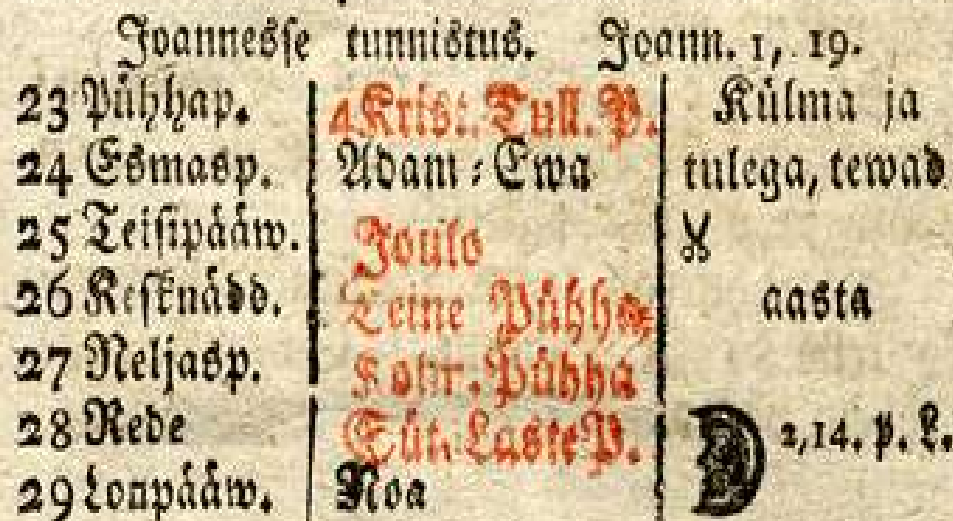 Joannesse tunnistus. Joann. 1, 19.
23 Pühhap. 4 Krist. Tull. P. Külma ja
24 Esmasp. Adam ⸗ Ewa tulega, tewad
25 Teisipääw. Joulo
26 Kesknädd. Teine Pühha, aasta
27 Neljasp. Kolm. Pühha
28 Rede Süt. Laste P. 2,14. p. L.
29 Lonpääw. Noa